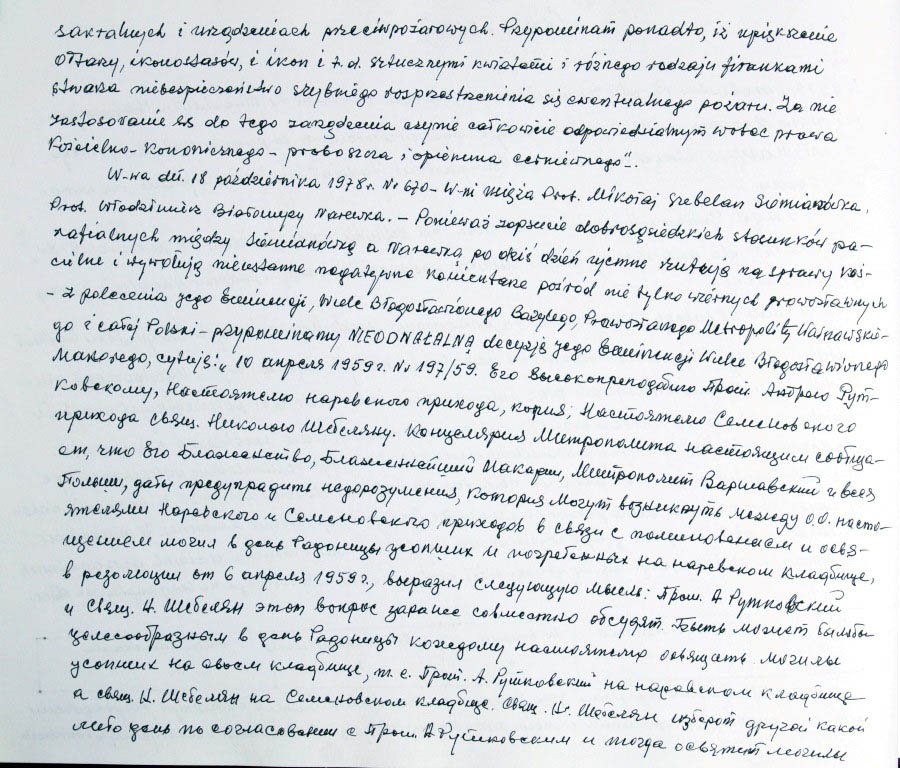 sakralnych i urządzeniach przeciwpożarowych. Przypominam ponadto, iż upiększenie
Ołtarzy, ikonostasów, i ikon i t.d. sztucznymi kwiatami i różnego rodzaju firankami
stwarza niebezpieczeństwo szybkiego rozprzestrzenienia się ewentualnego pożaru. Za nie
zastosowanie się do tego zarządzenia czynię całkowicie odpowiedzialnym wobec prawa
Kościelno-Kanonicznego - proboszcza i opiekuna cerkiewnego".
W-wa dń. 18 października 1978r. Nr 670 - W-ni Księża Prot. Mikołaj Szebelan Siemianówka,
Prot. Włodzimierz Narewka. - Ponieważ sąsiedzkich stosunków pa-
rafialnych między Siemianówką a Narewką po dziś dzień ujemnie rzutują na sprawy koś-
cielne i wywołują nieustanne negatywne komentarze pośród nie tylko wiernych prawosławnych
- Z polecenia Jego Eminencji, Wielce Błogosławionego Bazylego, Prawosławnego Metropolity Warszawskie-
go i całej Polski - przypominamy NIEODWAŁALNĄ decyzję Jego Eminencji Wielce Błogosławionego
Makarego, cytuję: „10 апреля 1959 г. Nr 197/59. Его Высокопреподобию Прот. Андрею Рут-
ковскому, Настоятелю наревского прихода, копия; Настоятелю Семеновского
прихода свящ. Николаю Шебеляну. Канцелярия Митрополита настоящим сообща-
ет, что Его Блаженство, Блаженнейший Макарий, Митрополит Варшавский и всея
Польши, дабы предупрадить недоразумения, которыя могут возникнуть между О.О. насто-
ятелями Наревского и Семеновского приходов в связи с поминованием и освя-
щением могил в день Радоницы усопших и погребенных на наревском кладбище,
в резолюции от 6 апреля 1959 г., выразил следующую мысль: Прот. А Рутковский
и Свящ. Н. Шебелян этот вопрос заранее совместно обсудят. Быть может былобы
целесообразным в день Радоницы каждому настоятелю освящать могилы
усопших на своем кладбище, т.е. Прот. А. Рутковский на наревском кладбище
а свящ. Н. Шебелян на Семеновском кладбище. Свящ. Н. Шебелян изберет другой какой
либо день по согласовании с Прот. А Рутковским и тогда освятит могилы